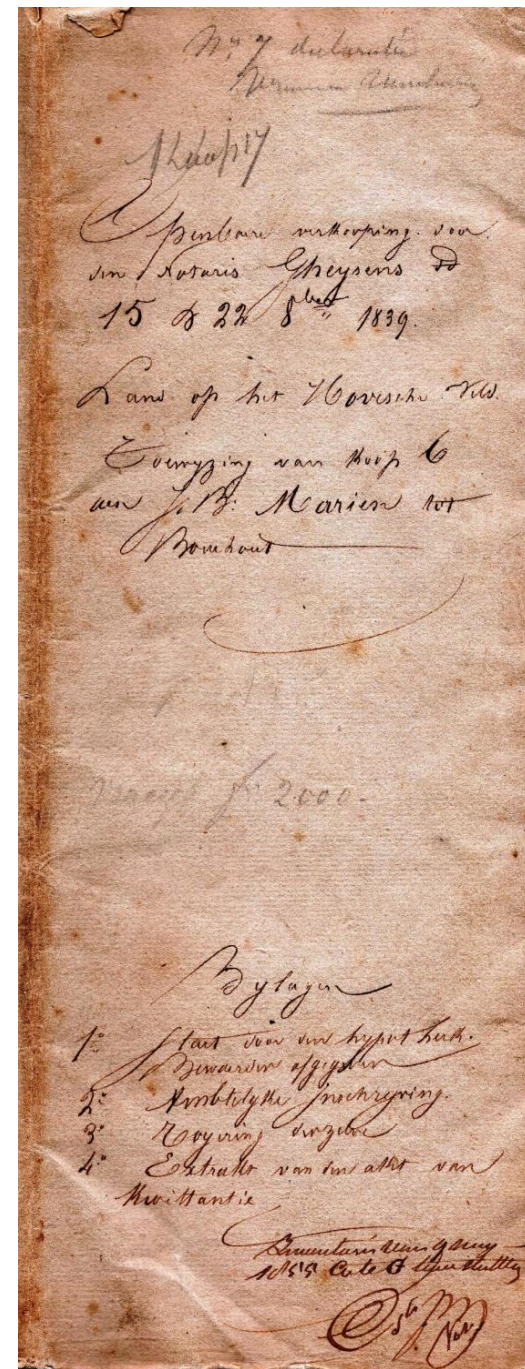 N. 7 declaratie
Koop 17
Openbare verkooping voor
den Notaris Gheysens dd
15 & 22 8ber 1839.
Land op het Hovische Veld.
Toewyzing van Koop 6
aen J. B. Marien tot
Bouchout
fr 2000.
Bylagen
1° Staet door den hypotheek-
bewaerder afgegeven
2° Ambtelyke inschryving.
3° Royering derzelve
4° Extrakt van den akt van
Kwittantie
Inventaris van
1855 Cote G